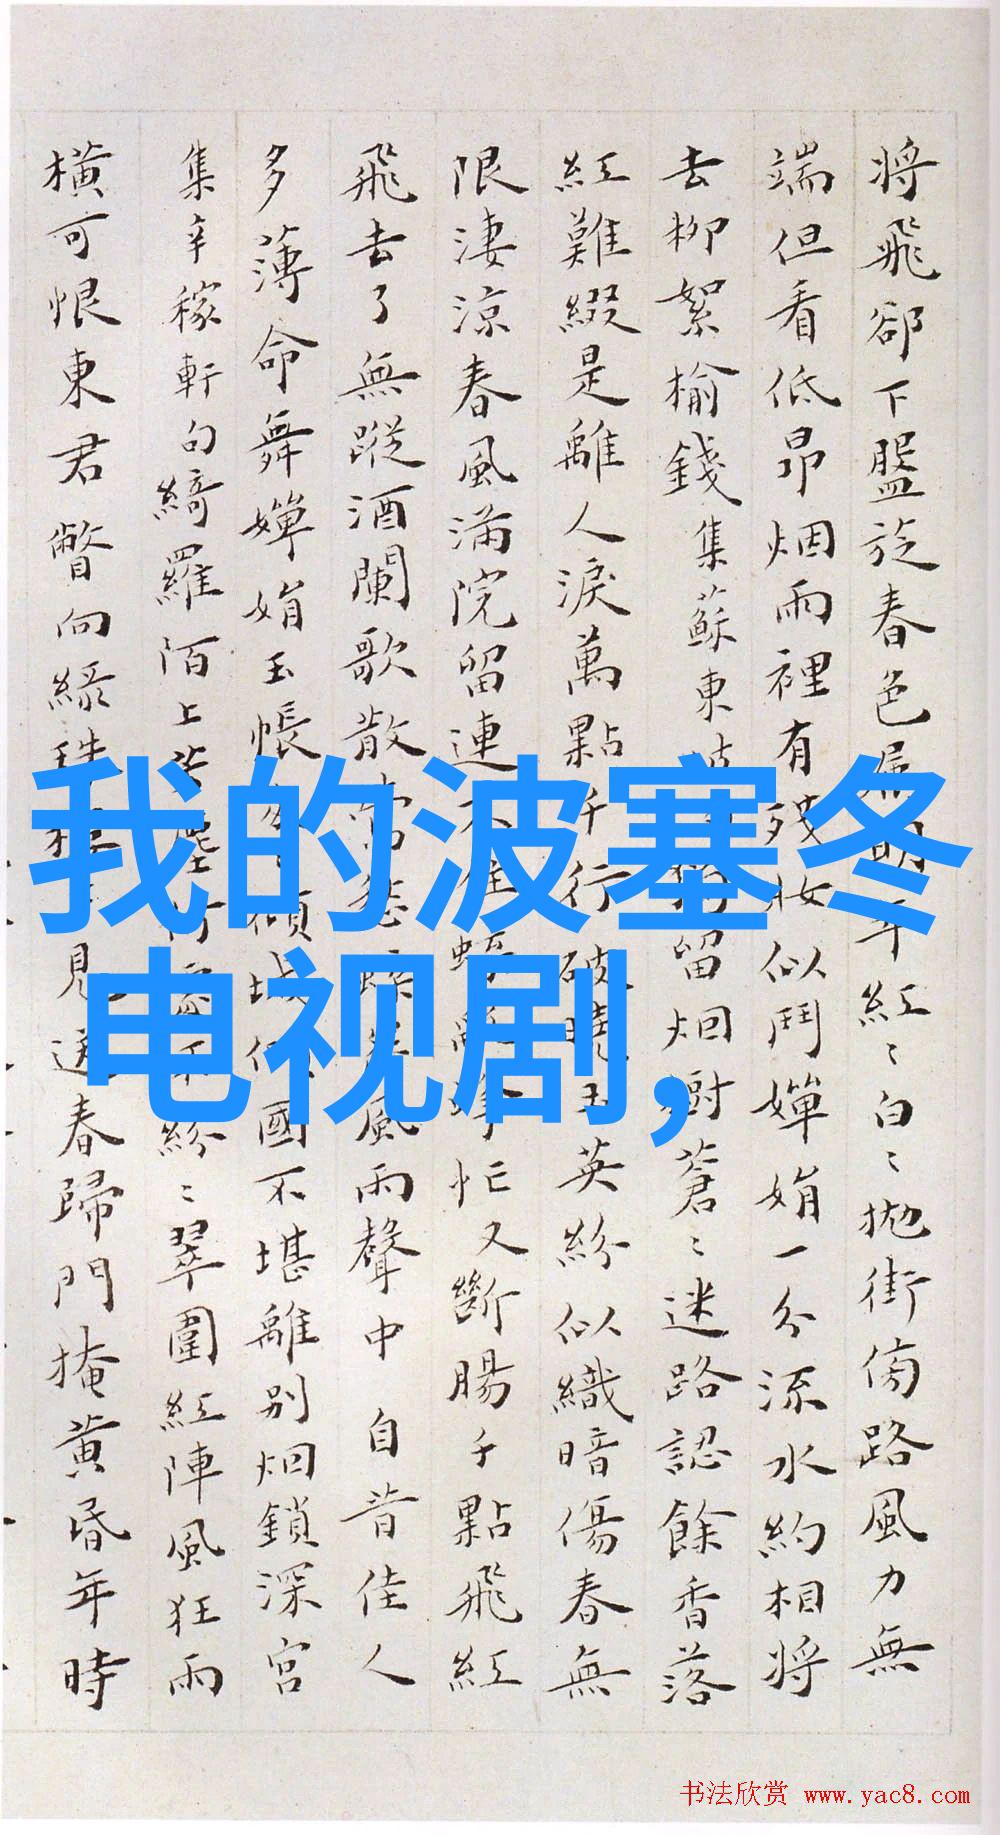 將飛卻下盤旋春色屬明年紅〻白〻拋街傍路風力無
端但看低昂烟雨裡有殘妝似鬥嬋娟一分流水約相將
去柳絮榆錢集蘇東坡句留烟尉蒼〻迷路認餘香落
紅難綴是離人淚萬點千行破曉玉英紛似織暗傷春無
限淒涼春風滿院留連不住蜂忙又斷腸千點飛紅
飛去了無蹤酒闌歌散風雨聲中 自昔佳人
多薄命舞嬋娟玉帳傾城傾國不堪離別烟鎖深宮
集辛稼軒句綺羅陌上芳塵紛〻翠圍紅陣風狂雨
橫可恨東君瞥向綠珠樓見送春歸門掩黃昏年時
我的波塞冬
电视剧,
书法欣赏 www.yac8.com